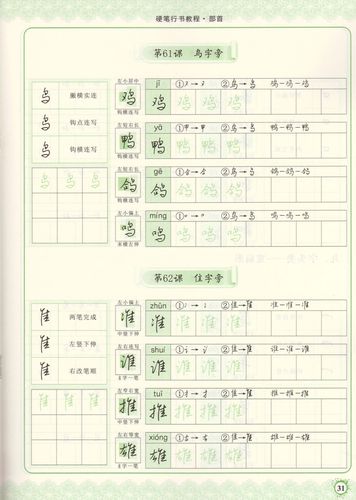 硬笔行书教程·部首
第61课 鸟字旁
鸟 撇横实连
鸟 钩点连写
鸟 横钩连写
左小居中 鸡 钩横连写 jī ①又→又 ②鸟→鸟 鸡-鸡-鸡
左短右长 鸭 钩横连写 yā ①甲→甲 ②鸟→鸟 鸭-鸭-鸭
左短右长 鸽 钩横连写 gē ①合→合 ②鸟→鸟 鸽-鸽-鸽
左小偏上 鸣 末横左伸 míng ①口→口 ②鸟→鸟 鸣-鸣-鸣
第62课 隹字旁
隹 两笔完成
隹 左竖下伸
隹 右改笔顺
左小偏上 准 中竖下伸 zhǔn ①冫→冫 ②隹→隹 准-准-准
谁 8字一笔 shuí ①讠→讠 ②隹→隹 谁-谁-谁
左窄右宽 推 中竖下伸 tuī ①扌→扌 ②隹→隹 推-推-推
左右等宽 雄 8字一笔 xióng ①厷→厷 ②隹→隹 雄-雄-雄
31